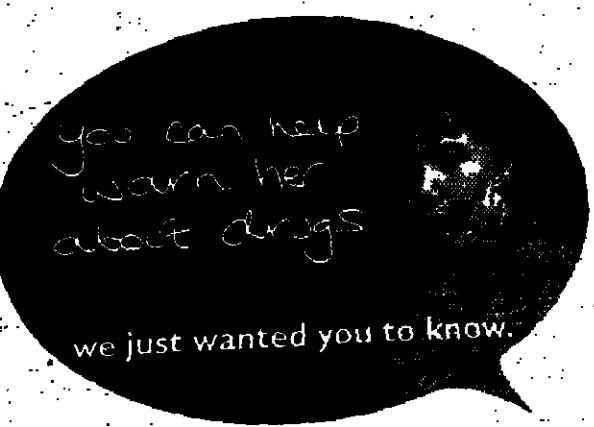 you can help
warn her
about drugs
we just wanted you to know.